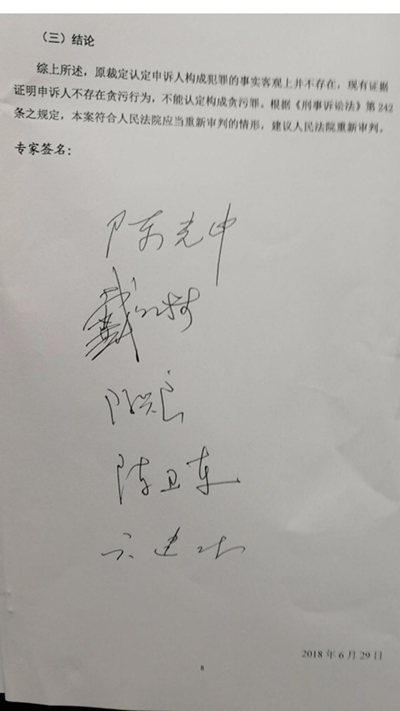 （三）结论
综上所述，原裁定认定申诉人构成犯罪的事实客观上并不存在，现有证据
证明申诉人不存在贪污行为，不能认定构成贪污罪。根据《刑事诉讼法》第 242
条之规定，本案符合人民法院应当重新审判的情形，建议人民法院重新审判。
专家签名：
陈光中
戴
陈兴良
陈卫东
卞建林
2018 年 6 月 29 日
8